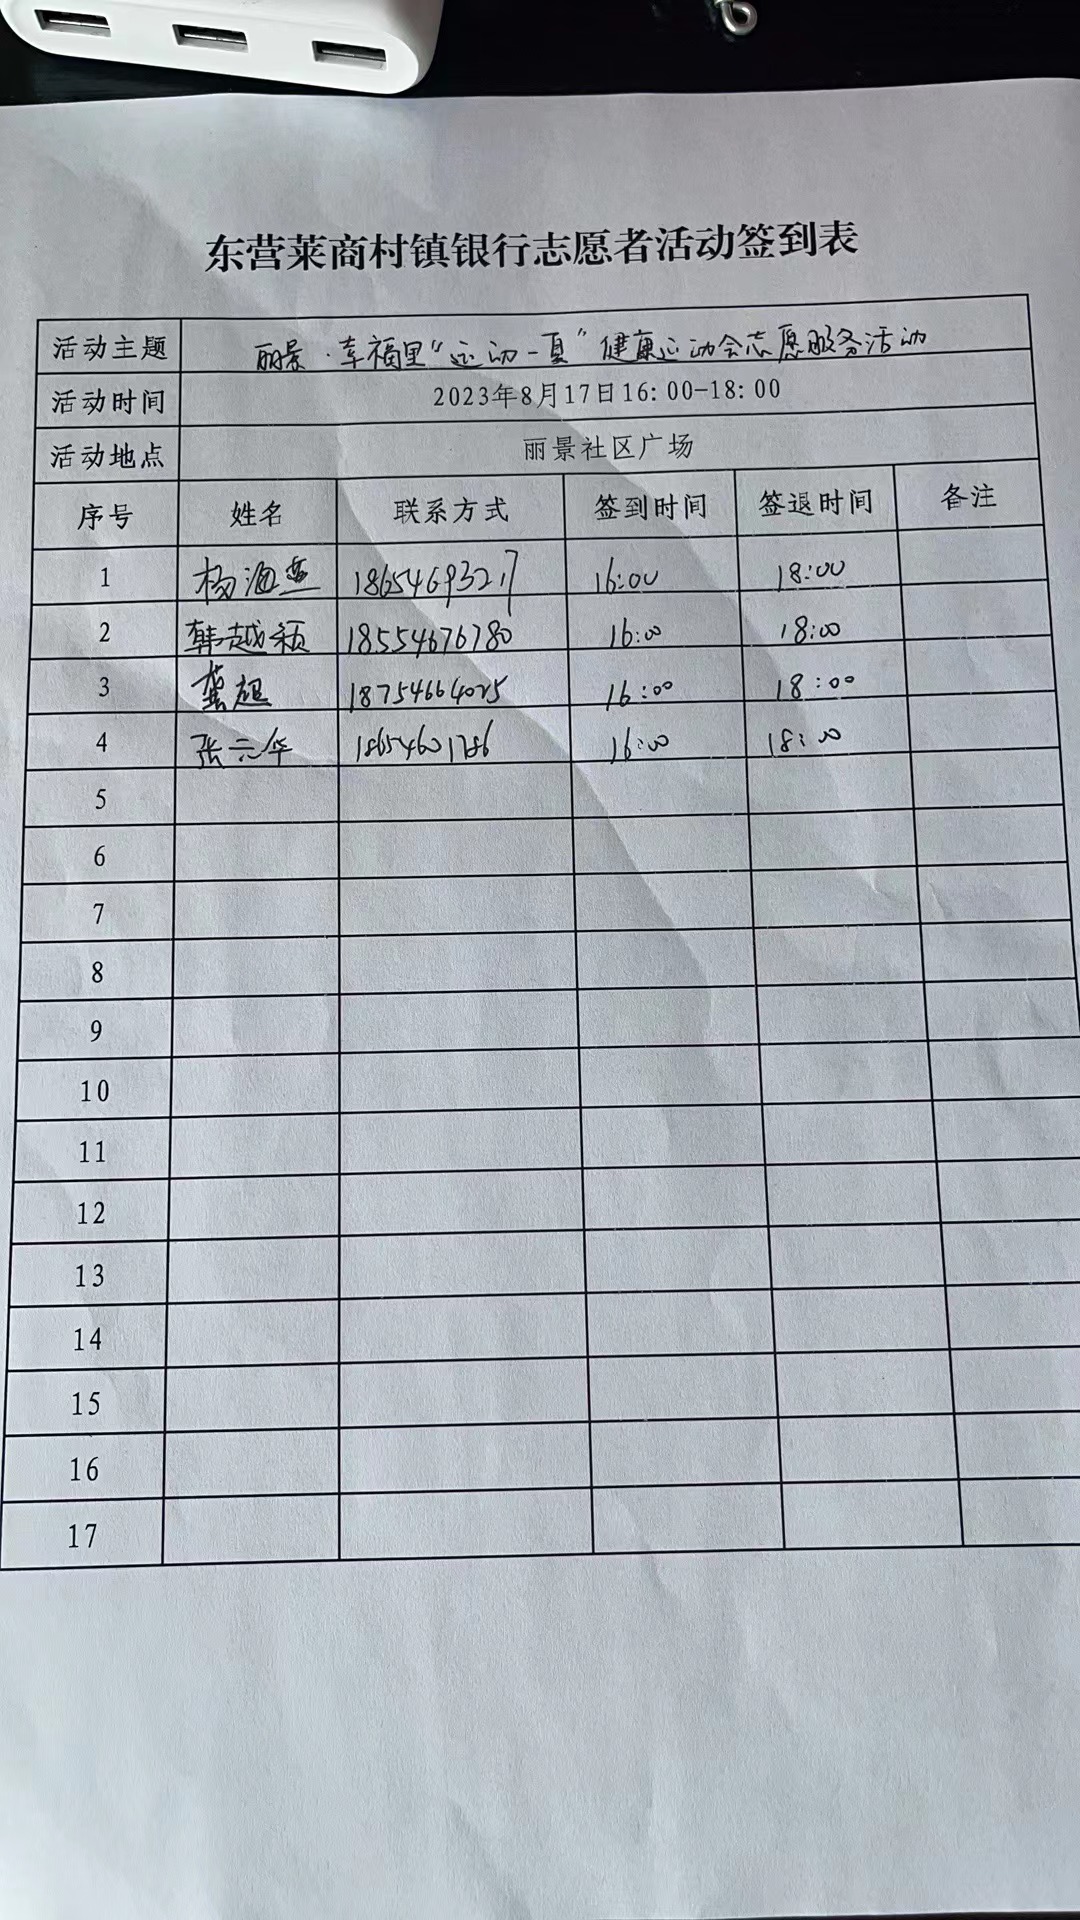 东营莱商村镇银行志愿者活动签到表
活动主题 丽景·幸福里“运动一夏”健康运动会志愿服务活动
活动时间 2023年8月17日16:00-18:00
活动地点 丽景社区广场
序号 姓名 联系方式 签到时间 签退时间 备注
1 杨海燕 18654693217 16:00 18:00
2 韩越颖 18554676780 16:00 18:00
3 龚超 18754664025 16:00 18:00
4 张元华 18654601786 16:00 18:00
5
6
7
8
9
10
11
12
13
14
15
16
17